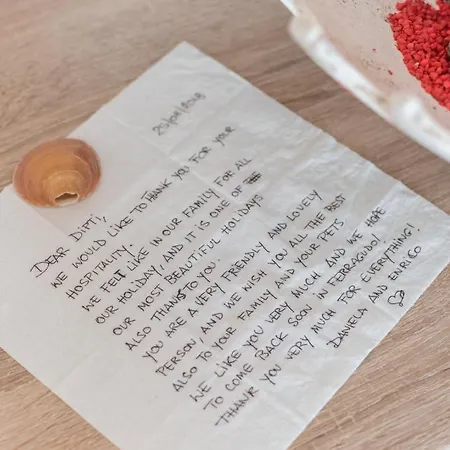 25/08/2018
DEAR DIPTI,
WE WOULD LIKE TO THANK YOU FOR YOUR
HOSPITALITY.
WE FELT LIKE IN OUR FAMILY FOR ALL
OUR HOLIDAY, AND IT IS ONE OF
OUR MOST BEAUTIFUL HOLIDAYS
ALSO THANKS TO YOU.
YOU ARE A VERY FRIENDLY AND LOVELY
PERSON, AND WE WISH YOU ALL THE BEST
ALSO TO YOUR FAMILY AND YOUR PETS
WE LIKE YOU VERY MUCH AND WE HOPE
TO COME BACK SOON IN FERRAGUDO!
THANK YOU VERY MUCH FOR EVERYTHING!
DANIELA AND ENRICO